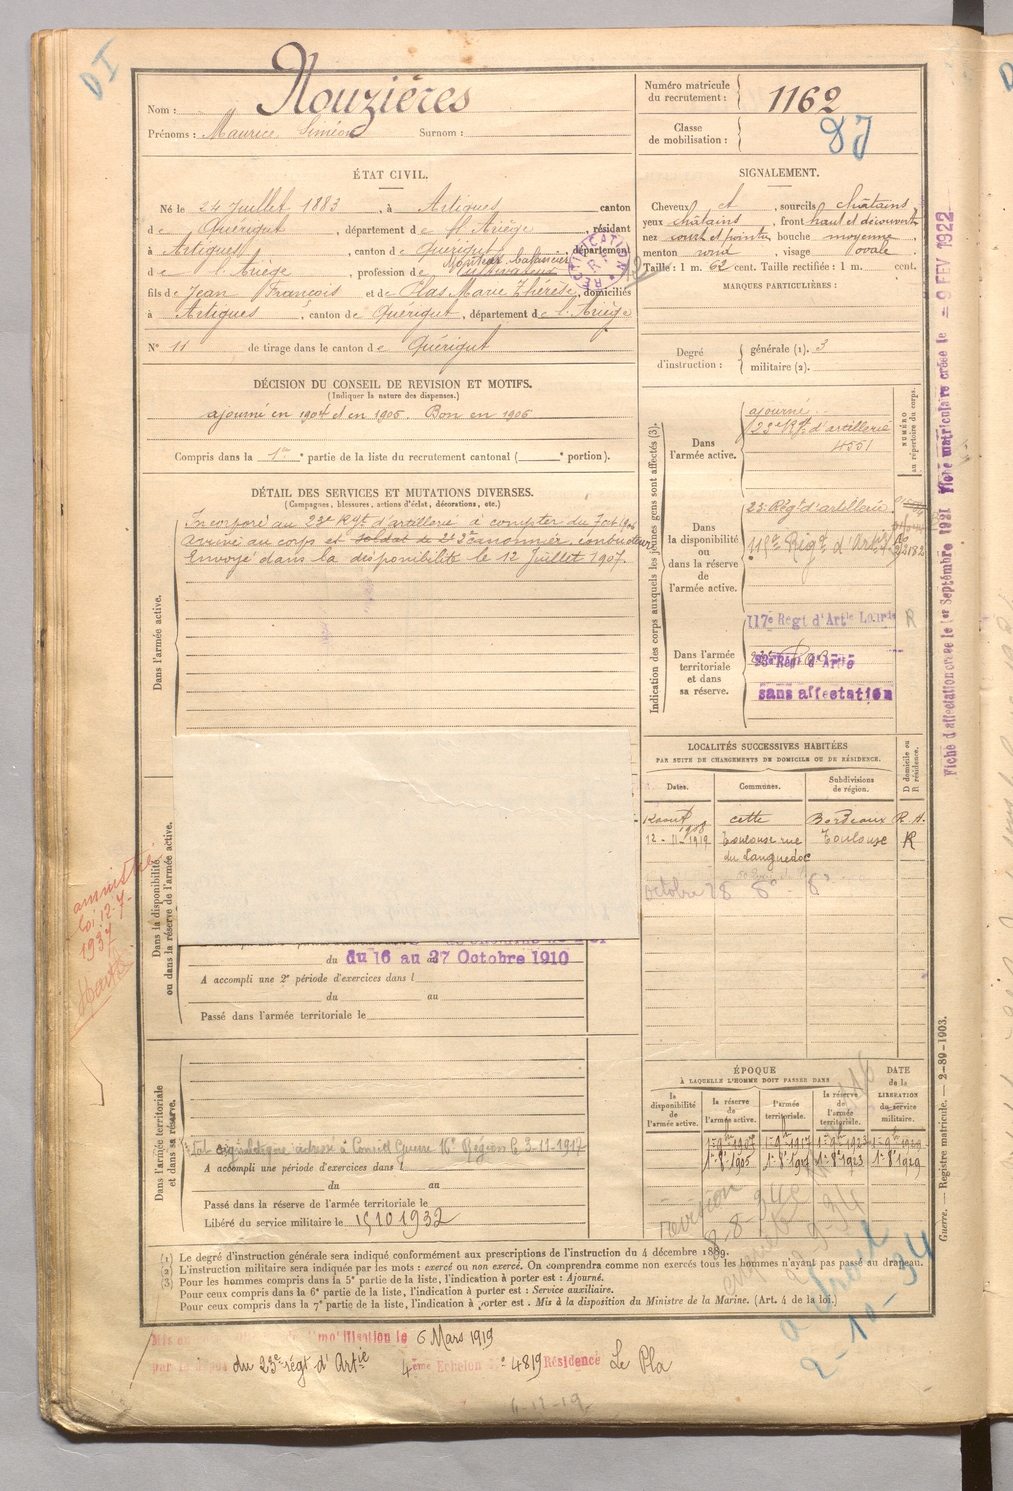 DI
Nom : Nouzières
Prénoms : Maurice Siméon Surnom :
Numéro matricule du recrutement : 1162
Classe de mobilisation :
ÉTAT CIVIL.
Né le 24 Juillet 1883, à Artigues canton
de Quérigut, département de l'Ariège, résidant
à Artigues, canton de Quérigut, département
de l'Ariège, profession de cultivateur
RECTIFICATION
fils de Jean François et de Clas Marie Thérèse, domiciliés
à Artigues, canton de Quérigut, département de l'Ariège
N° 11 de tirage dans le canton de Quérigut
SIGNALEMENT.
Cheveux et, sourcils châtains,
yeux châtains, front haut et découvert
nez court et pointu, bouche moyenne,
menton rond, visage ovale.
Taille : 1 m. 62 cent. Taille rectifiée : 1 m. cent.
MARQUES PARTICULIÈRES :
Degré d'instruction : générale (1). 3
militaire (2).
DÉCISION DU CONSEIL DE REVISION ET MOTIFS.
(Indiquer la nature des dispenses.)
ajourné en 1904 et en 1905. Bon en 1906
Compris dans la 1re partie de la liste du recrutement cantonal ( e portion).
DÉTAIL DES SERVICES ET MUTATIONS DIVERSES.
(Campagnes, blessures, actions d'éclat, décorations, etc.)
Incorporé au 23e Rgt d'artillerie à compter du 7 oct 1906
Arrivé au corps et soldat de 2e canonnier conducteur
Envoyé dans la disponibilité le 12 Juillet 1907.
Dans l'armée active.
Dans la disponibilité ou dans la réserve de l'armée active.
du 16 au 27 Octobre 1910
A accompli une 2e période d'exercices dans l
du au
Passé dans l'armée territoriale le
Dans l'armée territoriale et dans sa réserve.
Etat signalétique adressé à Conseil Guerre 16e Région le 3-11-1917
A accompli une période d'exercices dans l
du au
Passé dans la réserve de l'armée territoriale le
Libéré du service militaire le 15 10 1932
Indication des corps auxquels les jeunes gens sont affectés (3).
NUMÉRO au répertoire du corps.
Dans l'armée active.
ajourné
23e Rgt d'artillerie
4551
Dans la disponibilité ou dans la réserve de l'armée active.
23e Régt d'artillerie
117e Régt d'Artie Lourde R
Dans l'armée territoriale et dans sa réserve.
23e Régt d'Artie
sans affectation
LOCALITÉS SUCCESSIVES HABITÉES
PAR SUITE DE CHANGEMENTS DE DOMICILE OU DE RÉSIDENCE.
Dates. Communes. Subdivisions de région. D domicile ou R résidence.
1908 cette Bordeaux R.A.
12-11-1919 Toulouse rue du Languedoc Toulouse R
octobre 28
ÉPOQUE
À LAQUELLE L'HOMME DOIT PASSER DANS
DATE de la LIBÉRATION du service militaire.
la disponibilité de l'armée active. la réserve de l'armée active. l'armée territoriale. la réserve de l'armée territoriale.
1er 8bre 1905 1er 8bre 1917 1er 8bre 1923 1er 8bre 1929
revision
8-8-34
2-10-34
(1) Le degré d'instruction générale sera indiqué conformément aux prescriptions de l'instruction du 4 décembre 1889.
(2) L'instruction militaire sera indiquée par les mots : exercé ou non exercé. On comprendra comme non exercés tous les hommes n'ayant pas passé au drapeau.
(3) Pour les hommes compris dans la 5e partie de la liste, l'indication à porter est : Ajourné.
Pour ceux compris dans la 6e partie de la liste, l'indication à porter est : Service auxiliaire.
Pour ceux compris dans la 7e partie de la liste, l'indication à porter est. Mis à la disposition du Ministre de la Marine. (Art. 4 de la loi.)
Mis en 6 Mars 1919
du 23e régt d'Artie 4ème Echelon N° 4819 Résidence Le Pla
amnistié
Loi 12-7-
1937
Guerre. — Registre matricule. — 2-89-1903.
Fiche d'affectation créée le 1er Septembre 1921 Fiche matriculaire créée le 9 FEV 1922